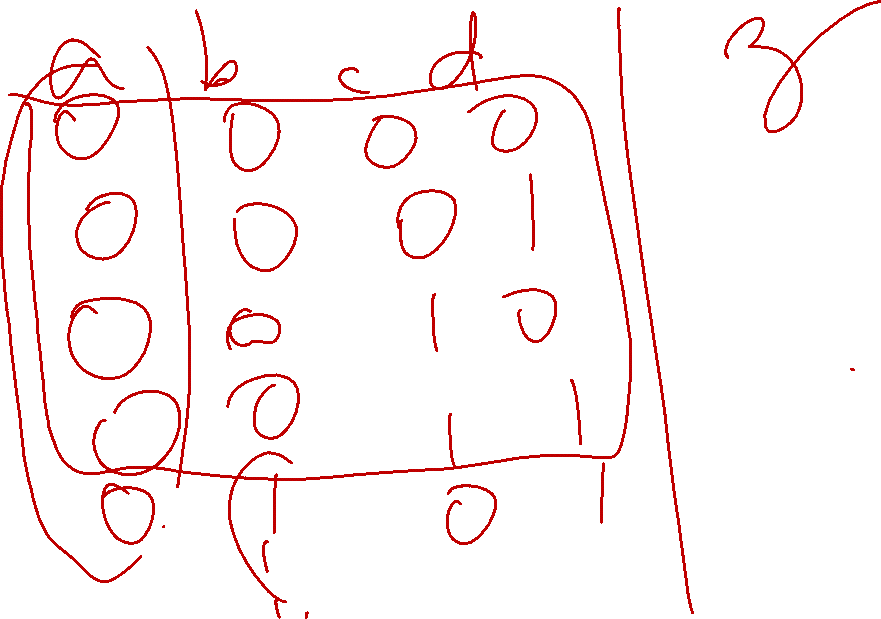 a b c d 3
0 0 0 0
0 0 0 1
0 0 1 0
0 0 1 1
0 1 0 1